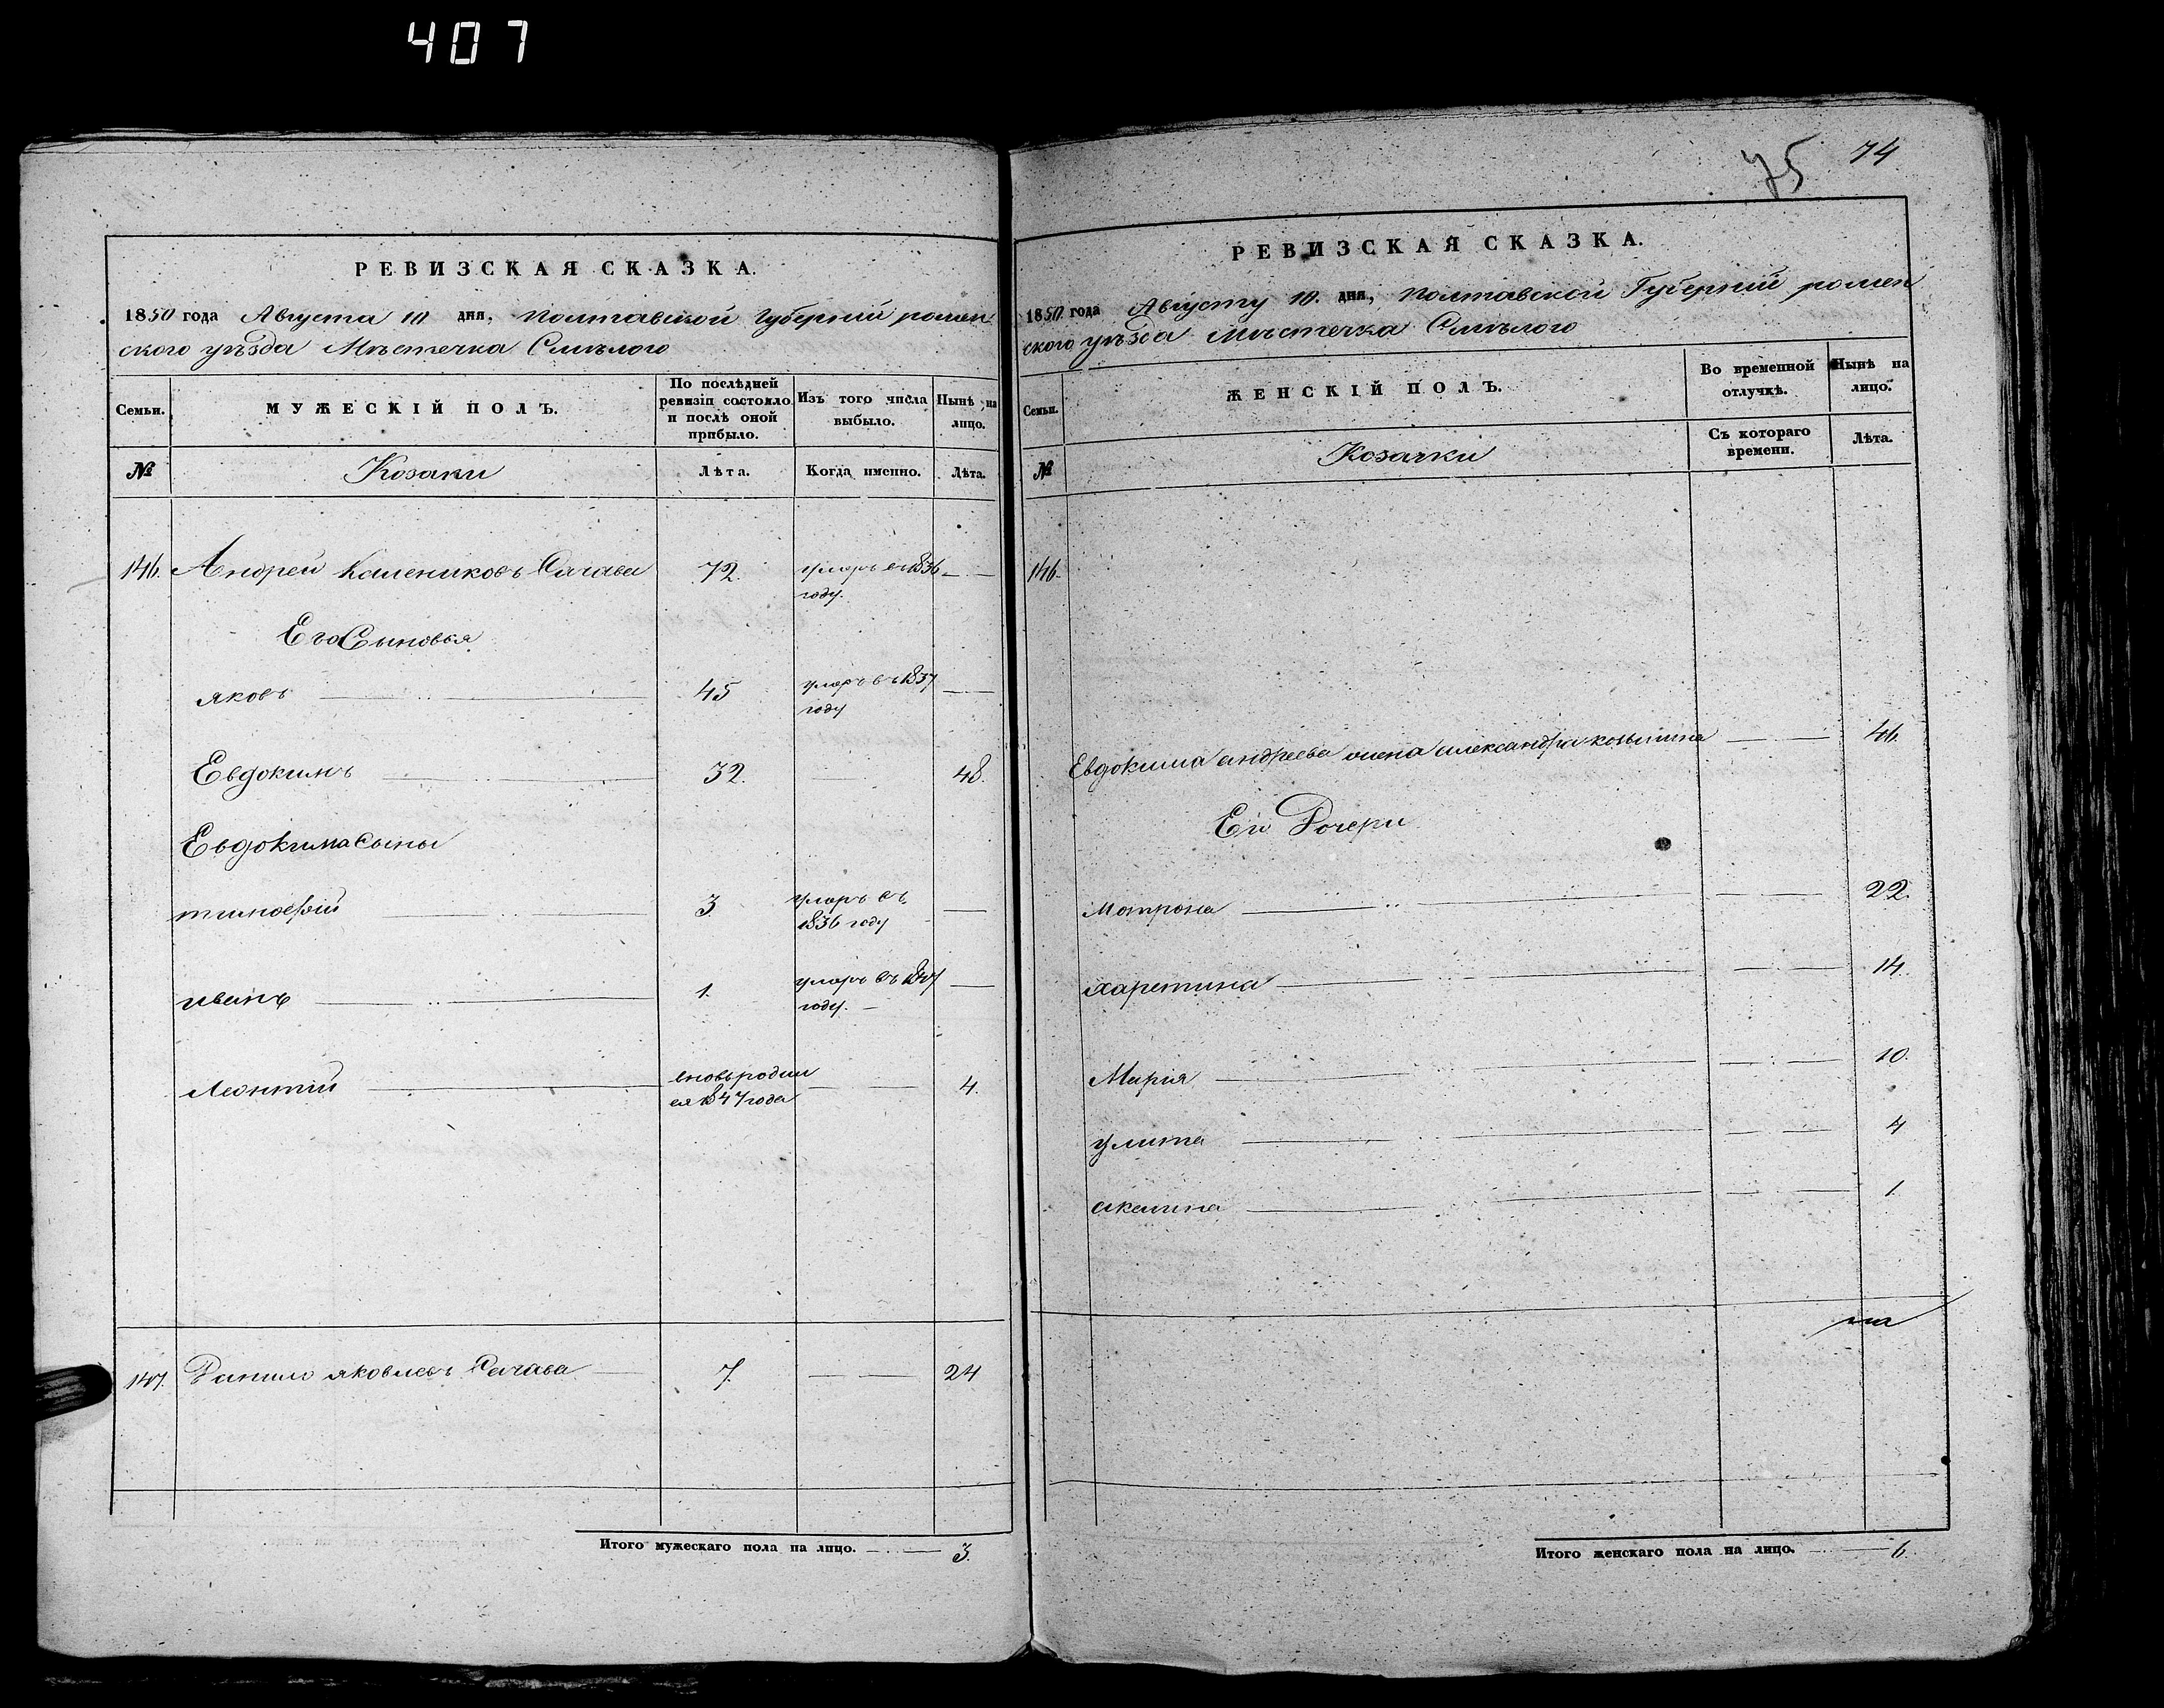 407
РЕВИЗСКАЯ СКАЗКА.
1850 года Августа 10 дня, Полтавской Губерніи ромен
ского уѣзда Мѣстечка Смѣлого
Семьи.
МУЖЕСКІЙ ПОЛЪ.
По послѣдней
ревизіи состояло
и послѣ оной
прибыло.
Изъ того числа
выбыло.
Нынѣ на
лицо.
№
Козаки
Лѣта.
Когда именно.
Лѣта.
146. Андрей Калениковъ 72. умеръ въ 1836
году.
Его Сыновья
яковъ 45 умеръ въ 1837
году
Евдокимъ 32. 48.
Евдокима Сыны
тимофѣй 3. умеръ въ
1836 году
иванъ 1. умеръ въ
году.
Леонтій вновь родил
ся 1847 года 4.
147. Данило яковлевъ 7. 24
Итого мужескаго пола на лицо. 3.
75 74
РЕВИЗСКАЯ СКАЗКА.
1850 года Августу 10. дня, Полтавской Губерній ромен
ского уѣзда Мѣстечка Смѣлого
Семьи.
ЖЕНСКІЙ ПОЛЪ.
Во временной
отлучкѣ.
Нынѣ на
лицо.
№
Козачки
Съ котораго
времени.
Лѣта.
146.
Евдокима андреева жена александра 46.
Ей Дочери
Мотрона 22.
харетина 14.
Марія 10.
улита 4
акилина 1.
Итого женскаго пола на лицо. 6